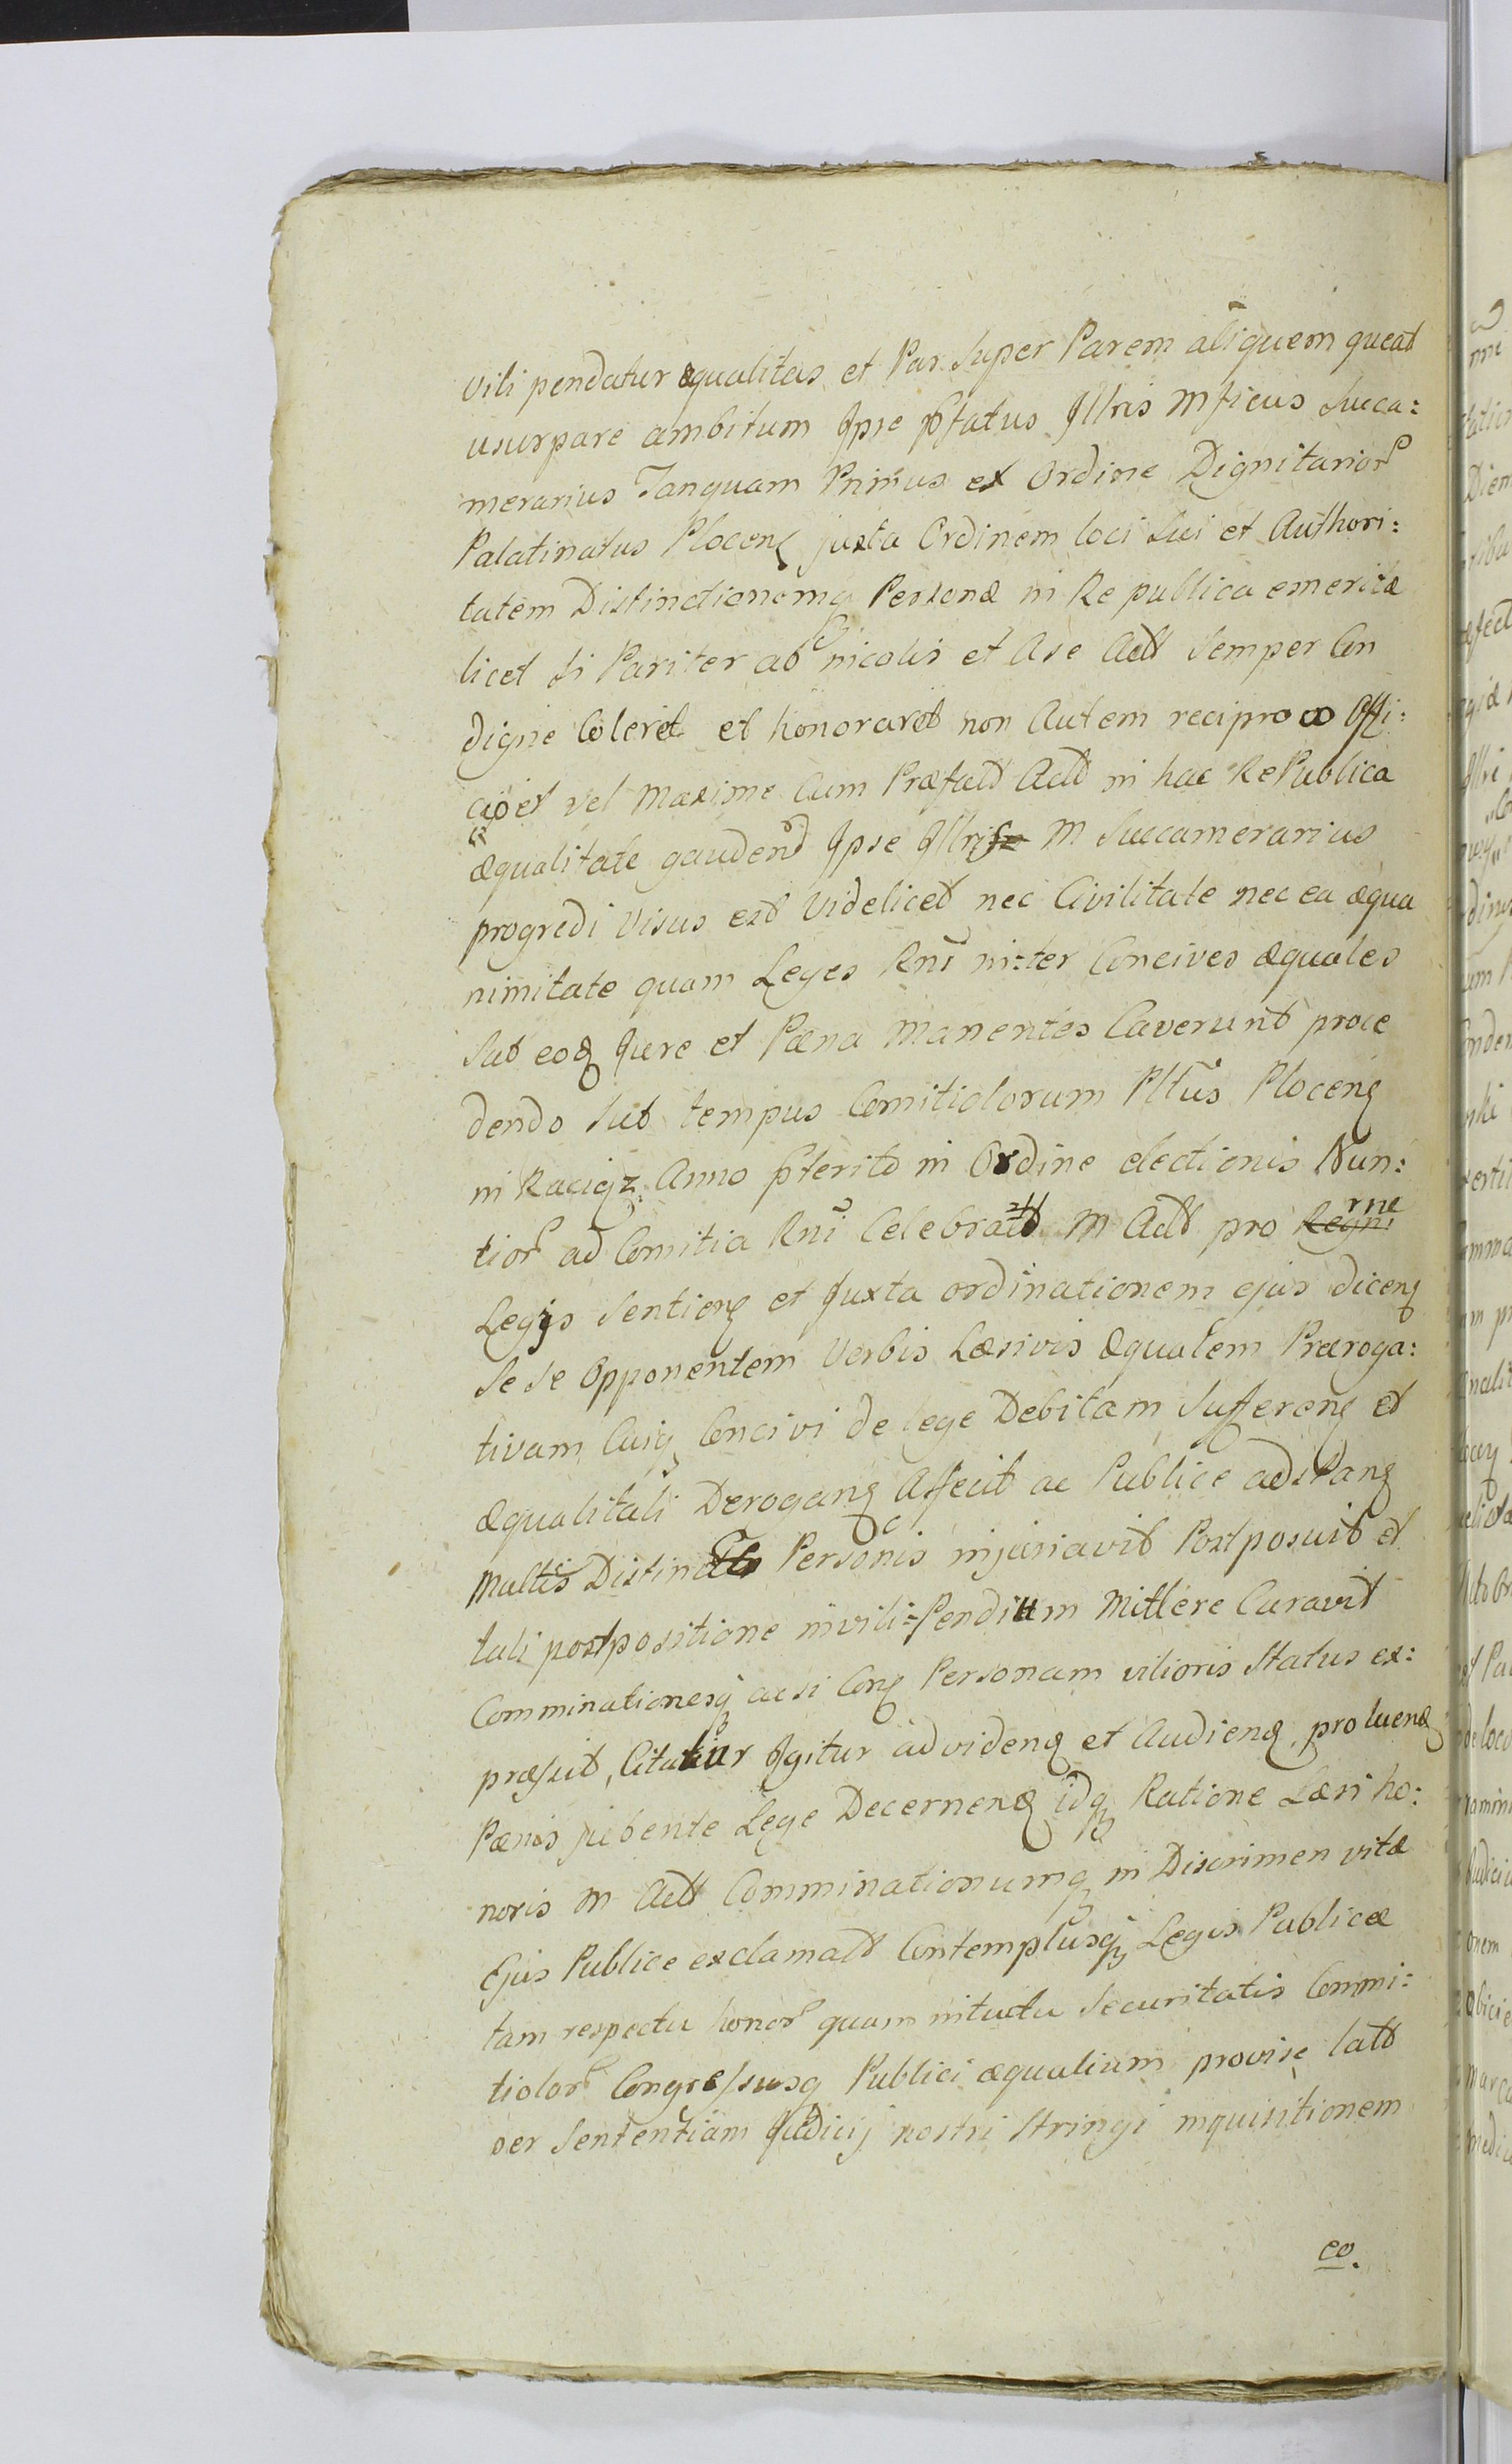 vili pendatur æqualitas et Par super Parem aliquem queat
usurpare ambitum Ipse pfatus Illris Mficus Succa:
merarius Tanquam Primus ex Ordine Dignitarior
Palatinatus Plocenq juxta Ordinem loci sui et Authori:
tatem Distinctionemq Personæ in Re publica emeritæ
licet si Pariter ab nicolis et Ase Actt semper Con
digne Coleret et honoraret non Autem reciproco Offi:
cio et vel maxime Cum Præfatt Actt in hac RePublica
æqualitate gaudend Ipse Illris M Succamerarius
progredi Visus est Videlicet nec Civilitate nec ea æqua
nimitate quam Leges Rni in=ter Concives æquales
sub eoq Jure et Pæna manentes Caverunt proce
dendo sub tempus Comitiolorum Pltus Plocenq
in Raciąz Anno pterito in Ordine electionis Nun:
tior ad Comitia Rni Celebratt M Actt pro Regni rne
Legis sentienq et Juxta ordinationem ejus dicenq
se se Opponentem Verbis Læsivis Æqualem Præroga:
tivam Cuiq Concivi de lege Debitam sufferenq et
æqualitati Deroganq Affecit ac Publice adstanq
multis Distinctis Personis injuriavit Postposuit et
tali postpositione in vili=Pendium Mittere Curavit
Comminationesq acsi Conq Personam vilioris Status ex:
præssit, Citatur Igitur ad videnq et Audienq, pro luenq
Pænis jubente Lege Decernenq idq Ratione Læsi ho:
noris M Actt Comminationumq in Discrimen vitæ
Ejus Publice exclamatt Contemptusq Legis Publicæ
tam respectu honor quam intuitu Securitatis Commi:
tiolor Congressusq Publici æqualium provise latt
per Sententiam Judicij nostri Stringi inquisitionem
eo.